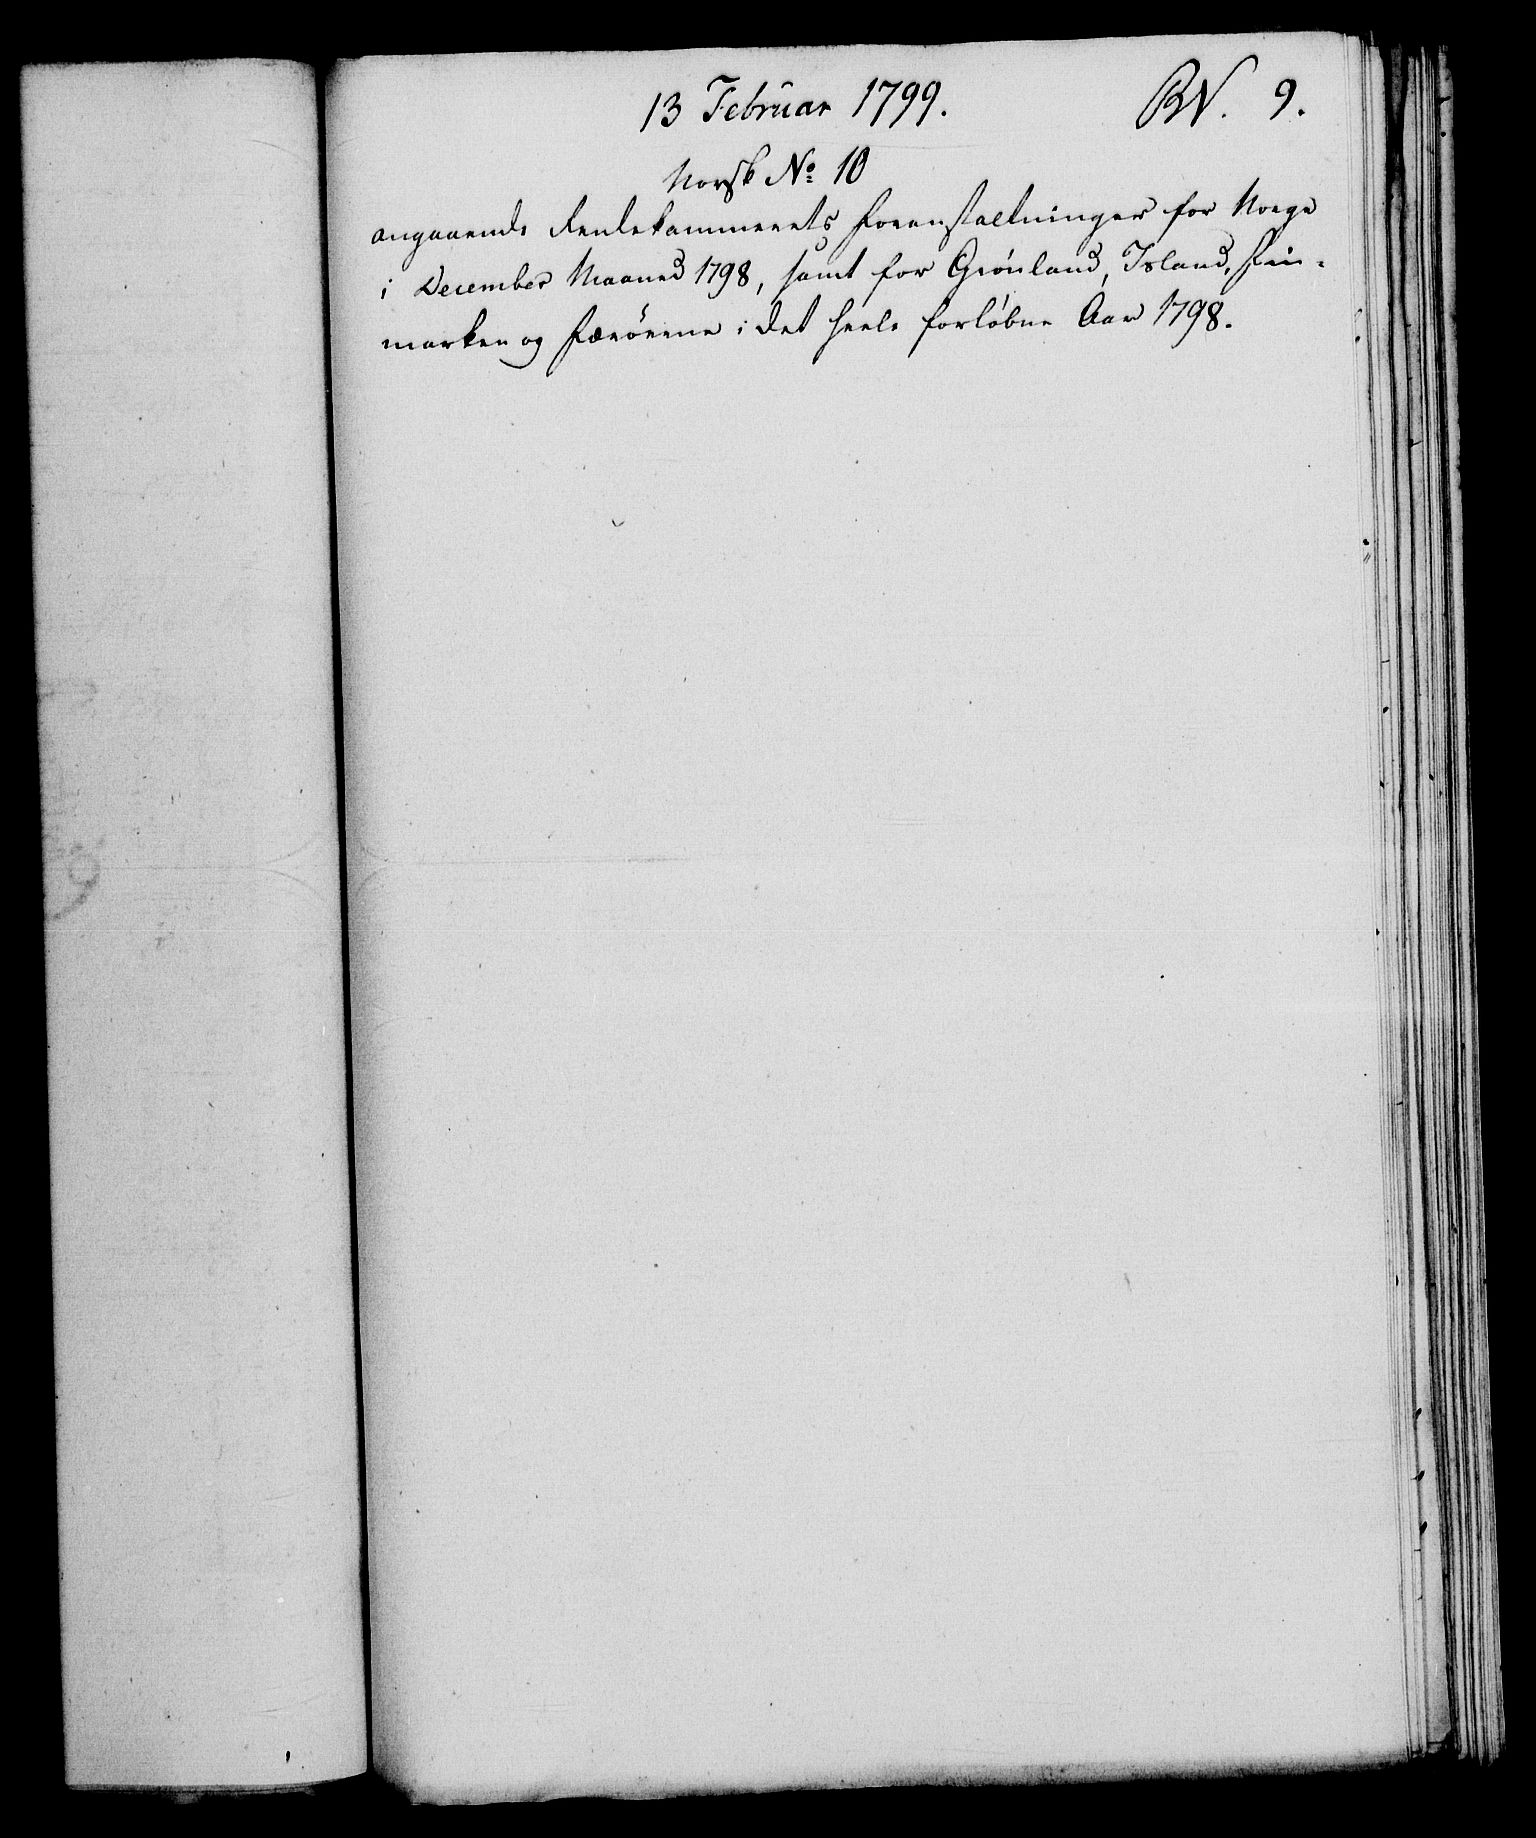 13 Februar 1799. RN. 9.
Norsk No 10
angaaende Rentekammerets Foranstaltninger for Norge
i December Maaned 1798, samt for Grönland, Island, Fin-
marken og Færöerne i det heele forløbne Aar 1798.